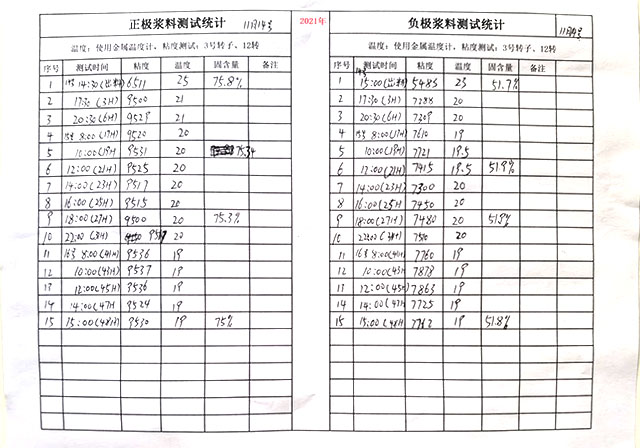 正极浆料测试统计 11月14号
温度：使用金属温度计，粘度测试：3号转子、12转
序号 测试时间 粘度 温度 固含量 备注
1 14:30(出料) 6511 25 75.8%
2 17:30 (3H) 9500 21
3 20:30(6H) 9529 21
4 15号 8:00(17H) 9520 20
5 10:00(19H 9531 20 75.34
6 12:00(21H) 9525 20
7 14:00(23H) 9517 20
8 16:00(25H) 9515 20
9 18:00(27H) 9500 20 75.3%
10 22:00 (31H) 20
11 16号 8:00(41H) 9536 19
12 10:00(43H) 9537 19
13 12:00(45H) 9536 19
14 14:00(47H 9524 19
15 15:00(48H) 9530 19 75%
2021年
负极浆料测试统计 11月14号
温度：使用金属温度计，粘度测试：3号转子、12转
序号 测试时间 粘度 温度 固含量 备注
1 14号 15:00(出料) 5486 23 51.7%
2 17:30(3H) 7288 20
3 20:30(6H) 7309 20
4 15号 8:00(17H) 7610 19
5 10:00(19H) 7721 19.5
6 12:00(21H) 7415 19.5 51.9%
7 14:00(23H) 7300 20
8 16:00(25H 7450 20
9 18:00(27H) 7480 20 51.8%
10 22:00(31H) 7510 20
11 16号 8:00(41H) 7760 19
12 10:00(43H 7878 19
13 12:00(45H) 7863 19
14 14:00(47H 7725 19
15 15:00(48H 19 51.8%